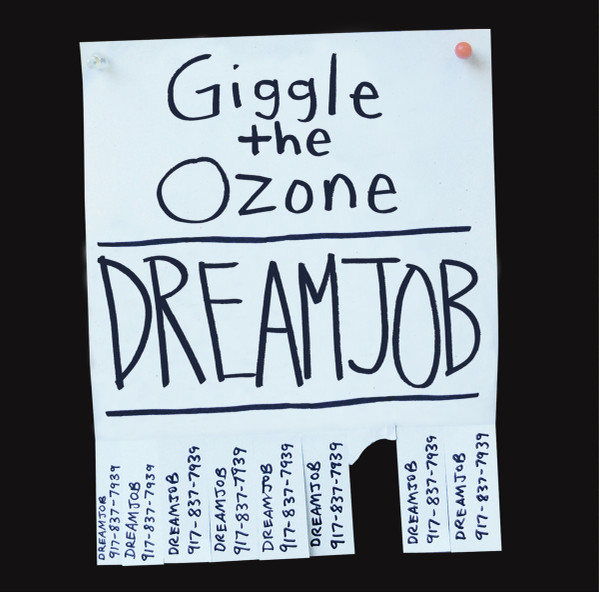 Giggle
the
Ozone
DREAMJOB
DREAMJOB
917-837-7939
DREAMJOB
917-837-7939
DREAMJOB
917-837-7939
DREAMJOB
917-837-7939
DREAMJOB
917-837-7939
DREAMJOB
917-837-7939
DREAMJOB
917-837-7939
DREAMJOB
917-837-7939